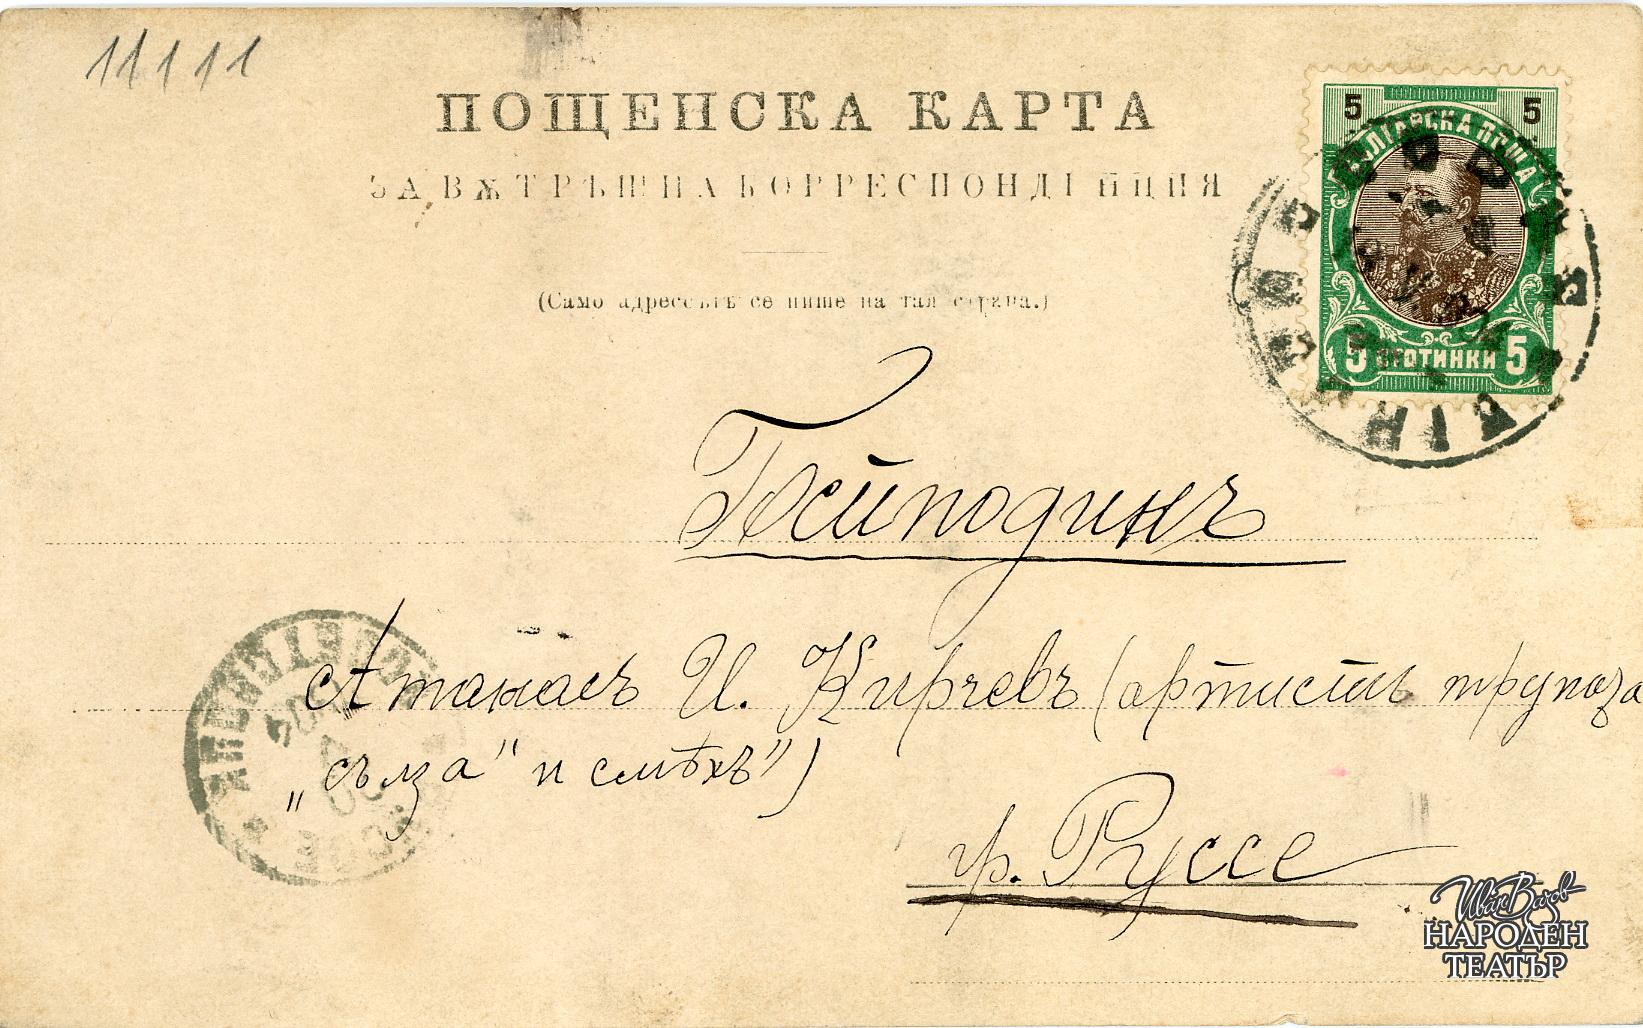 11111
ПОЩЕНСКА КАРТА
ЗА ВѪТРѢШНА КОРРЕСПОНДЕНЦИЯ
(Само адрессътъ се пише на тая страна.)
5 5
БЪЛГАРСКА ПОЩА
5 СТОТИНКИ 5
Господинъ
Атанасъ И. Кирчевъ (артистъ трупата
„сълза" и смѣхъ")
гр. Руссе
Иван Вазов
НАРОДЕН
ТЕАТЪР